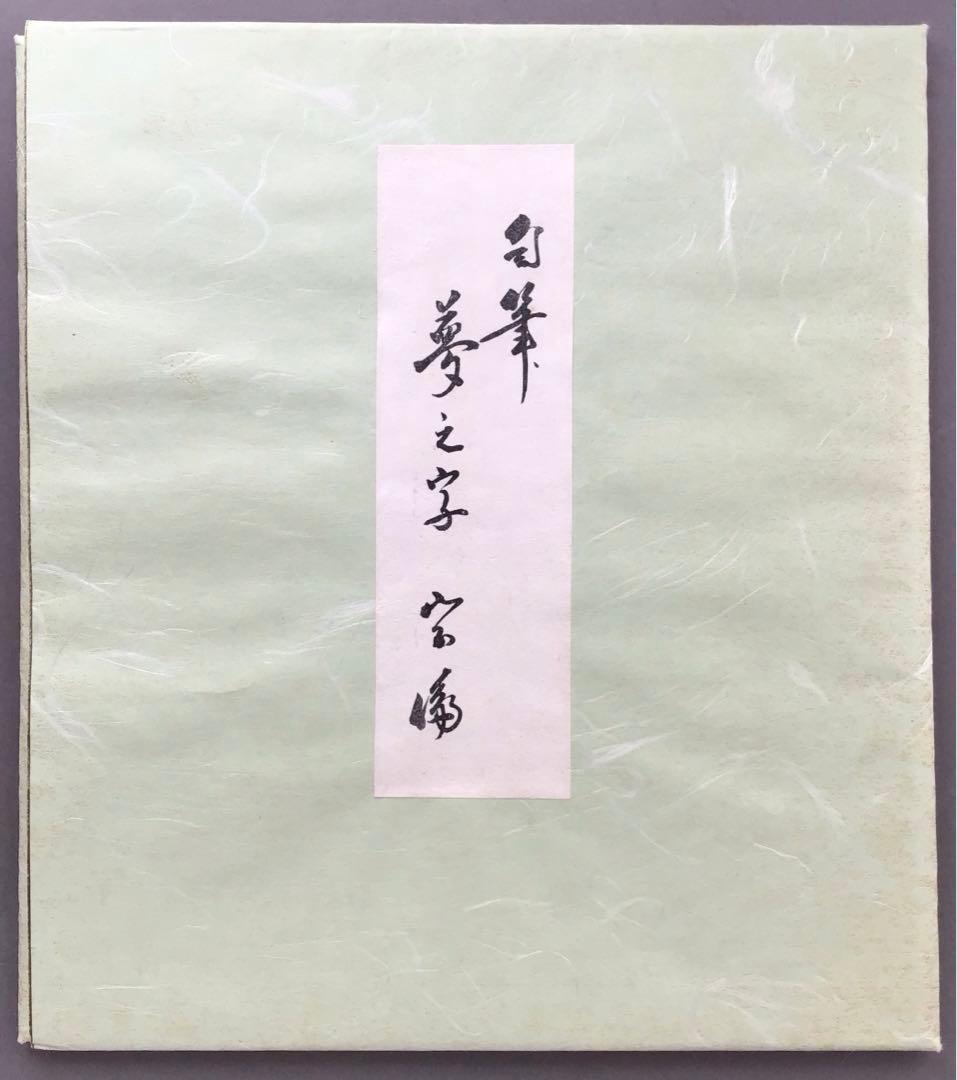 自筆
夢之字 宗徧